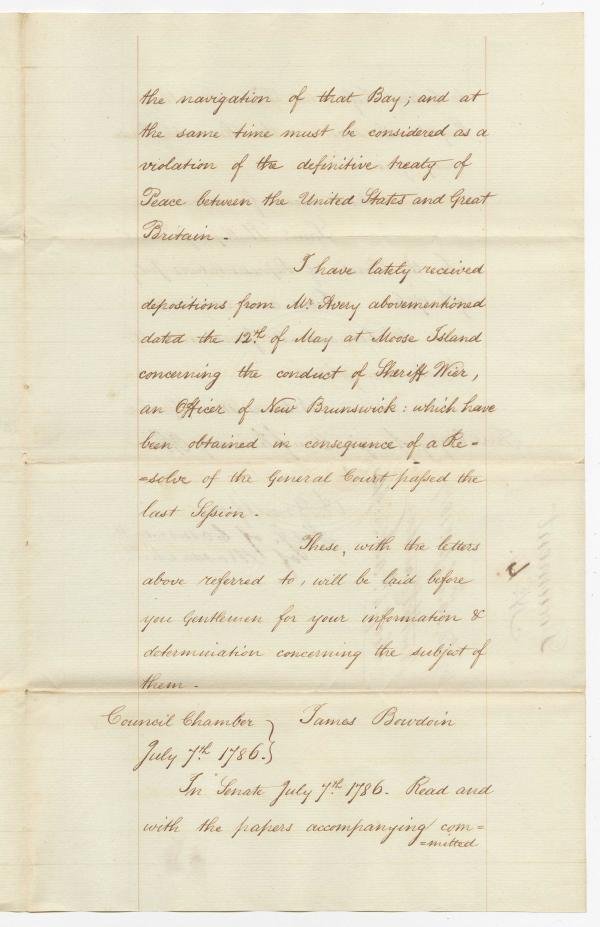 the navigation of that Bay; and at
the same time must be considered as a
violation of the definitive treaty of
Peace between the United States and Great
Britain -
I have lately recieved
depositions from Mr. Avery abovementioned
dated the 12th. of May at Moose Island
concerning the conduct of Sheriff Wier,
an Officer of New Brunswick: which have
been obtained in consequence of a Re=
=solve of the General Court passed the
last Session -
These, with the letters
above referred to, will be laid before
you Gentlemen for your information &
determination concerning the subject of
them -
Council Chamber } James Bowdoin
July 7th. 1786. }
In Senate July 7th. 1786 - Read and
with the papers accompanying com=
=mitted